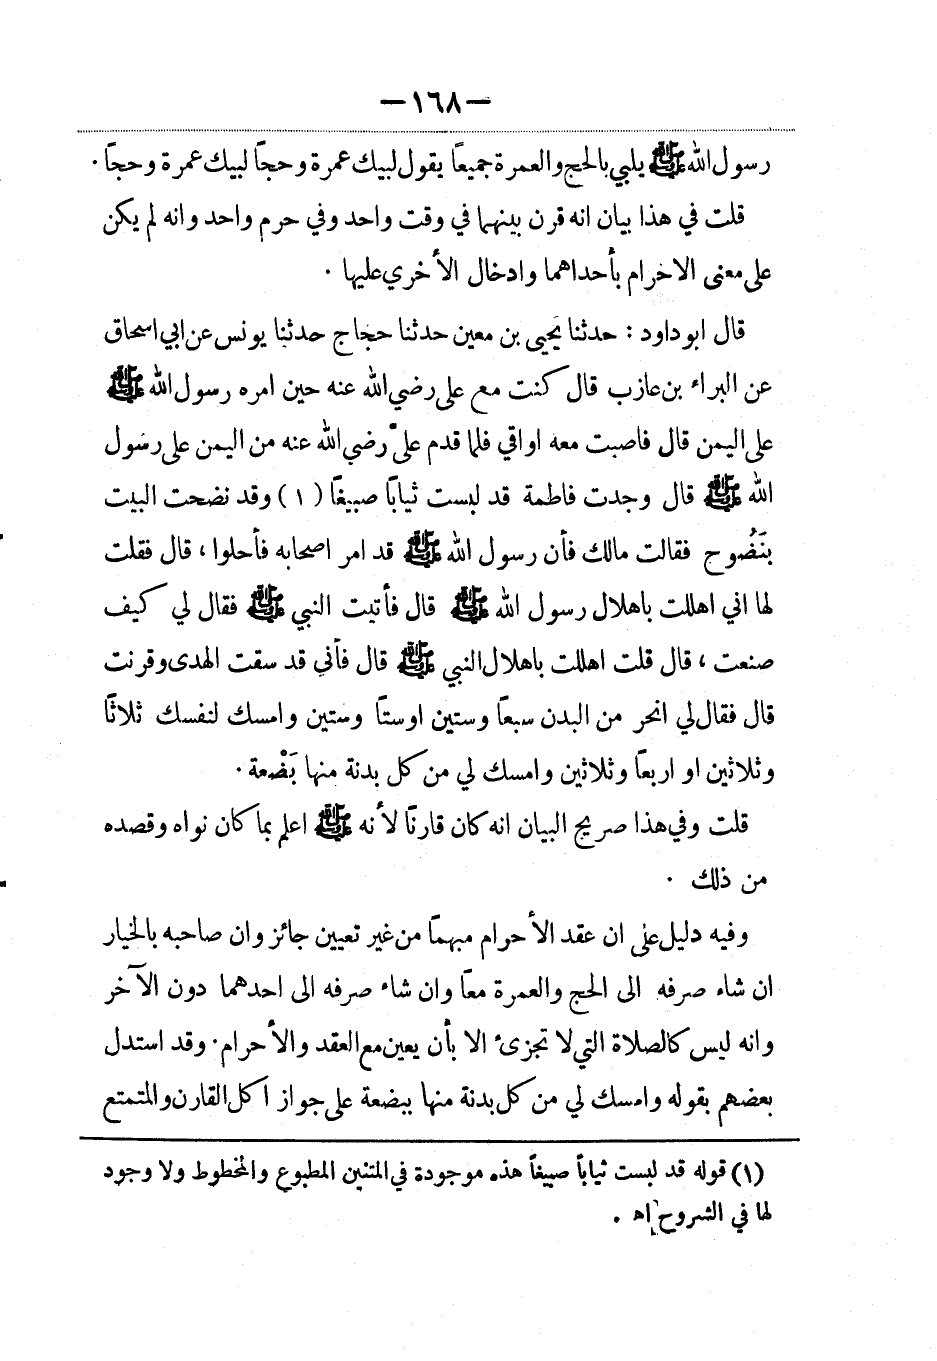 —١٦٨—
رسول الله ﷺ يلبي بالحج والعمرة جميعاً يقول لبيك عمرة وحجاً لبيك عمرة وحجاً .
قلت في هذا بيان انه قرن بينهما في وقت واحد وفي حرم واحد وانه لم يكن
على معنى الاحرام بأحداهما وادخال الأخري عليها .
قال ابو داود : حدثنا يحيى بن معين حدثنا حجاج حدثنا يونس عن ابي اسحاق
عن البراء بن عازب قال كنت مع علي رضي الله عنه حين امره رسول الله ﷺ
على اليمن قال فاصبت معه اواقي فلما قدم عليّ رضي الله عنه من اليمن على رسول
الله ﷺ قال وجدت فاطمة قد لبست ثياباً صبيغاً ( ١ ) وقد نضحت البيت
بنَضُوح فقالت مالك فأن رسول الله ﷺ قد امر اصحابه فأحلوا ، قال فقلت
لها اني اهللت باهلال رسول الله ﷺ قال فأتيت النبي ﷺ فقال لي كيف
صنعت ، قال قلت اهللت باهلال النبي ﷺ قال فأني قد سقت الهدى وقرنت
قال فقال لي انحر من البدن سبعاً وستين اوستاً وستين وامسك لنفسك ثلاثاً
وثلاثين او اربعاً وثلاثين وامسك لي من كل بدنة منها بَضْعة .
قلت وفي هذا صريح البيان انه كان قارناً لأنه ﷺ اعلم بما كان نواه وقصده
من ذلك .
وفيه دليل على ان عقد الأحرام مبهماً من غير تعيين جائز وان صاحبه بالخيار
ان شاء صرفه الى الحج والعمرة معاً وان شاء صرفه الى احدهما دون الآخر
وانه ليس كالصلاة التي لا تجزئ الا بأن يعين مع العقد والأحرام . وقد استدل
بعضهم بقوله وامسك لي من كل بدنة منها ببضعة على جواز اكل القارن والمتمتع
(١) قوله قد لبست ثياباً صبيغاً هذه موجودة في المتنين المطبوع والمخطوط ولا وجود
لها في الشروح اه .